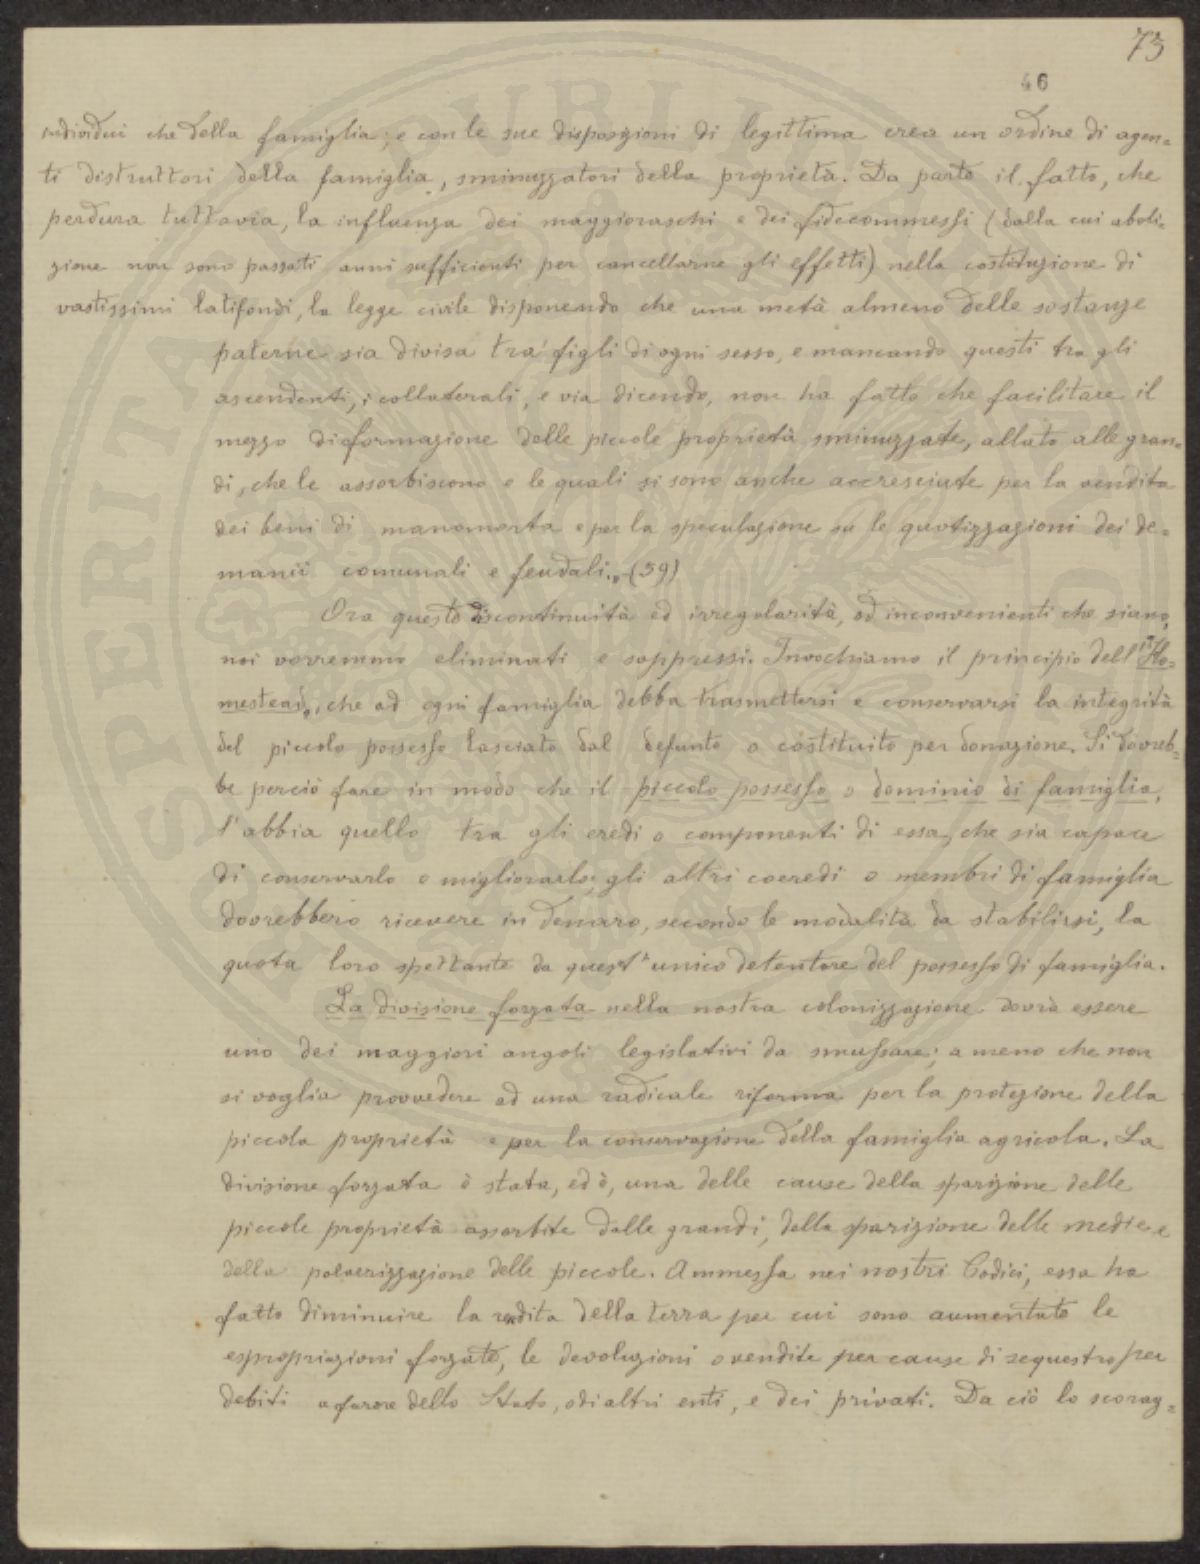 73
46
individui che della famiglia; e con le sue disposizioni di legittima crea un ordine di agen=
ti distruttori della famiglia, sminuzzatori della proprietà. Da parte il fatto, che
perdura tuttavia, la influenza dei maggioraschi e dei fidecommessi (dalla cui aboli=
zione non sono passati anni sufficienti per cancellarne gli effetti) nella costituzione di
vastissimi latifondi, la legge civile disponendo che una metà almeno delle sostanze
paterne sia divisa tra' figli di ogni sesso, e mancando questi tra gli
ascendenti, i collaterali, e via dicendo, non ha fatto che facilitare il
mezzo di formazione delle piccole proprietà sminuzzate, allato alle gran=
di, che le assorbiscono e le quali si sono anche accresciute per la vendita
dei beni di manomorta e per la speculazione su le quotizzazioni dei de=
manii comunali e feudali.„ (59)
Ora queste discontinuità ed irregolarità, od inconvenienti che siano,
noi vorremmo eliminati e soppressi. Invochiamo il principio dell'"Ho=
mestead„, che ad ogni famiglia debba trasmettersi e conservarsi la integrità
del piccolo possesso lasciato dal defunto o costituito per donazione. Si dovreb=
be perciò fare in modo che il piccolo possesso o dominio di famiglia,
l'abbia quello tra gli eredi o componenti di essa, che sia capace
di conservarlo e migliorarlo; gli altri coeredi o membri di famiglia
dovrebbero ricevere in denaro, secondo le modalità da stabilirsi, la
quota loro spettante da quest'unico detentore del possesso di famiglia.
La divisione forzata nella nostra colonizzazione dovrà essere
uno dei maggiori angoli legislativi da smussare; a meno che non
si voglia provvedere ad una radicale riforma per la protezione della
piccola proprietà e per la conservazione della famiglia agricola. La
divisione forzata è stata, ed è, una delle cause della sparizione delle
piccole proprietà assorbite dalle grandi, della sparizione delle medie e
della polverizzazione delle piccole. Ammessa nei nostri Codici, essa ha
fatto diminuire la rendita della terra per cui sono aumentate le
espropriazioni forzate, le devoluzioni o vendite per cause di sequestro per
debiti a favore dello Stato, o di altri enti, e dei privati. Da ciò lo scorag=